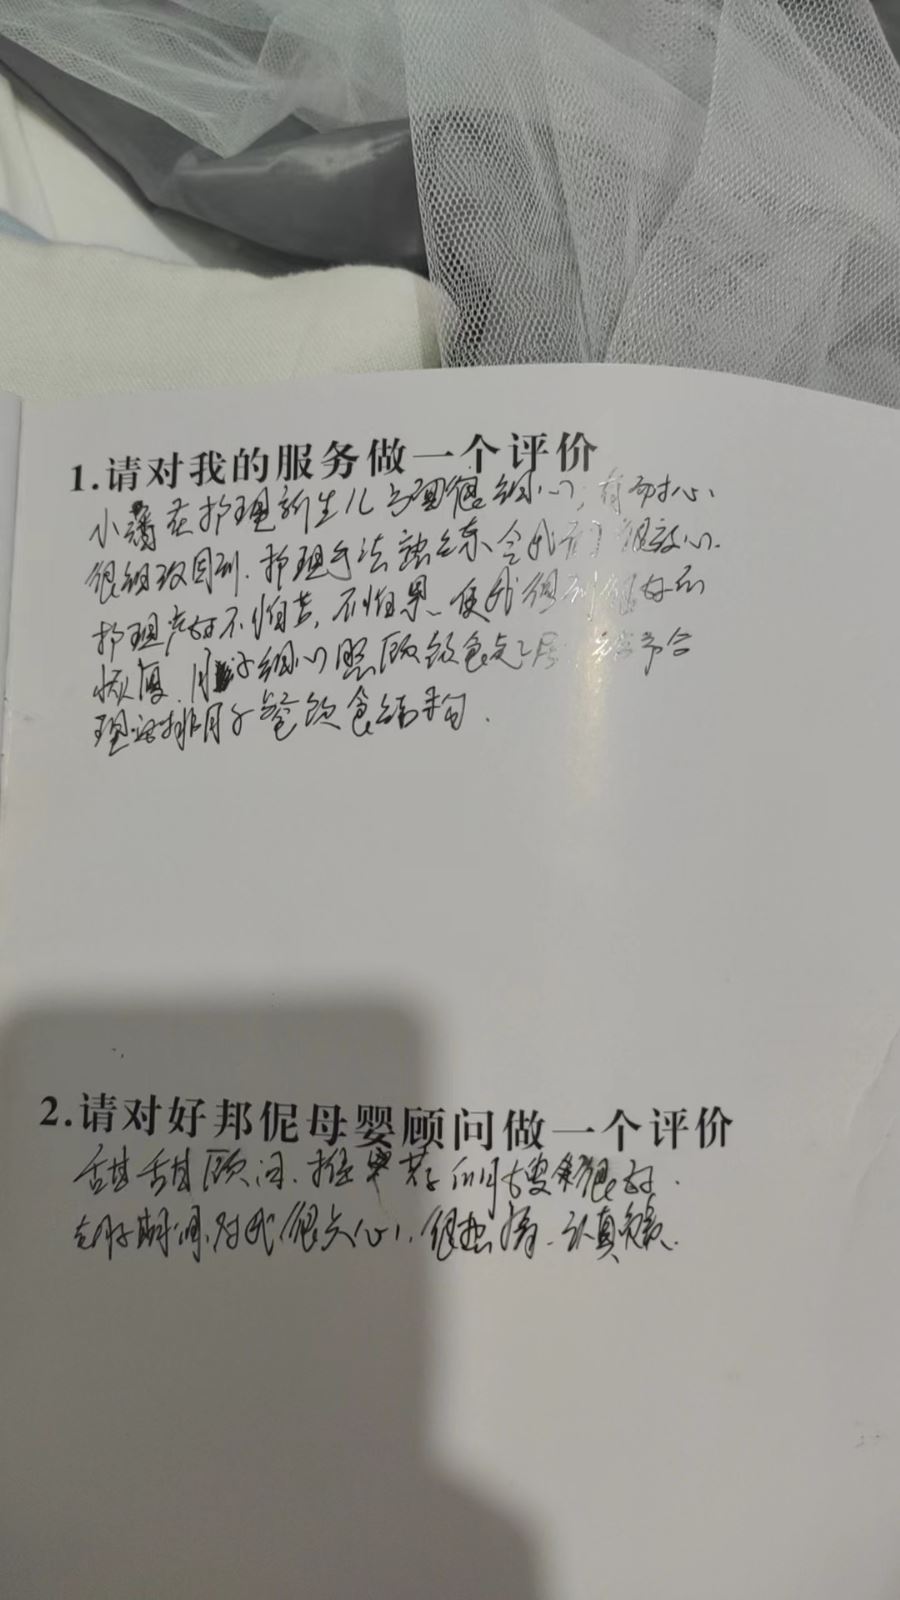 1.请对我的服务做一个评价
小 在护理新生儿方面很细心,有耐心、
很细致周到.护理手法熟练令我们很放心.
护理产妇不怕苦,不怕累、使我得到很好的
恢复.月子细心照顾饮食起居 合
理安排月子餐饮食结构.
2.请对好邦伲母婴顾问做一个评价
甜甜顾问.推荐的 很好.
期间.对我很关心.很热情.认真负责.